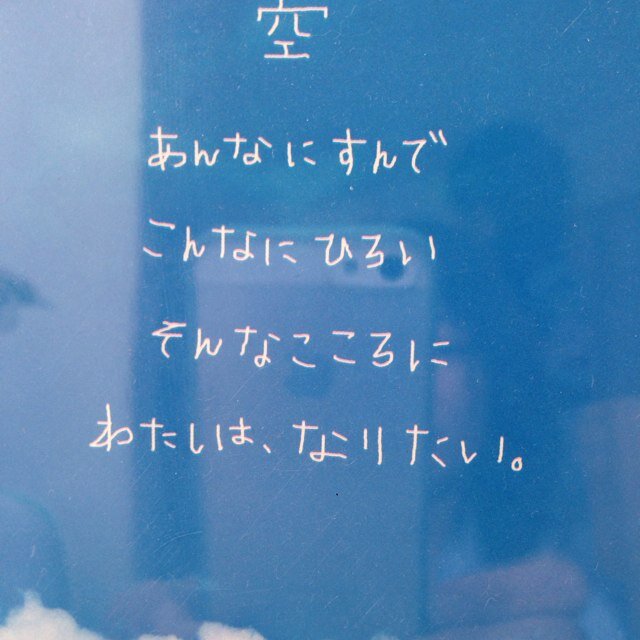 空
あんなにすんで
こんなにひろい
そんなこころに
わたしは、なりたい。